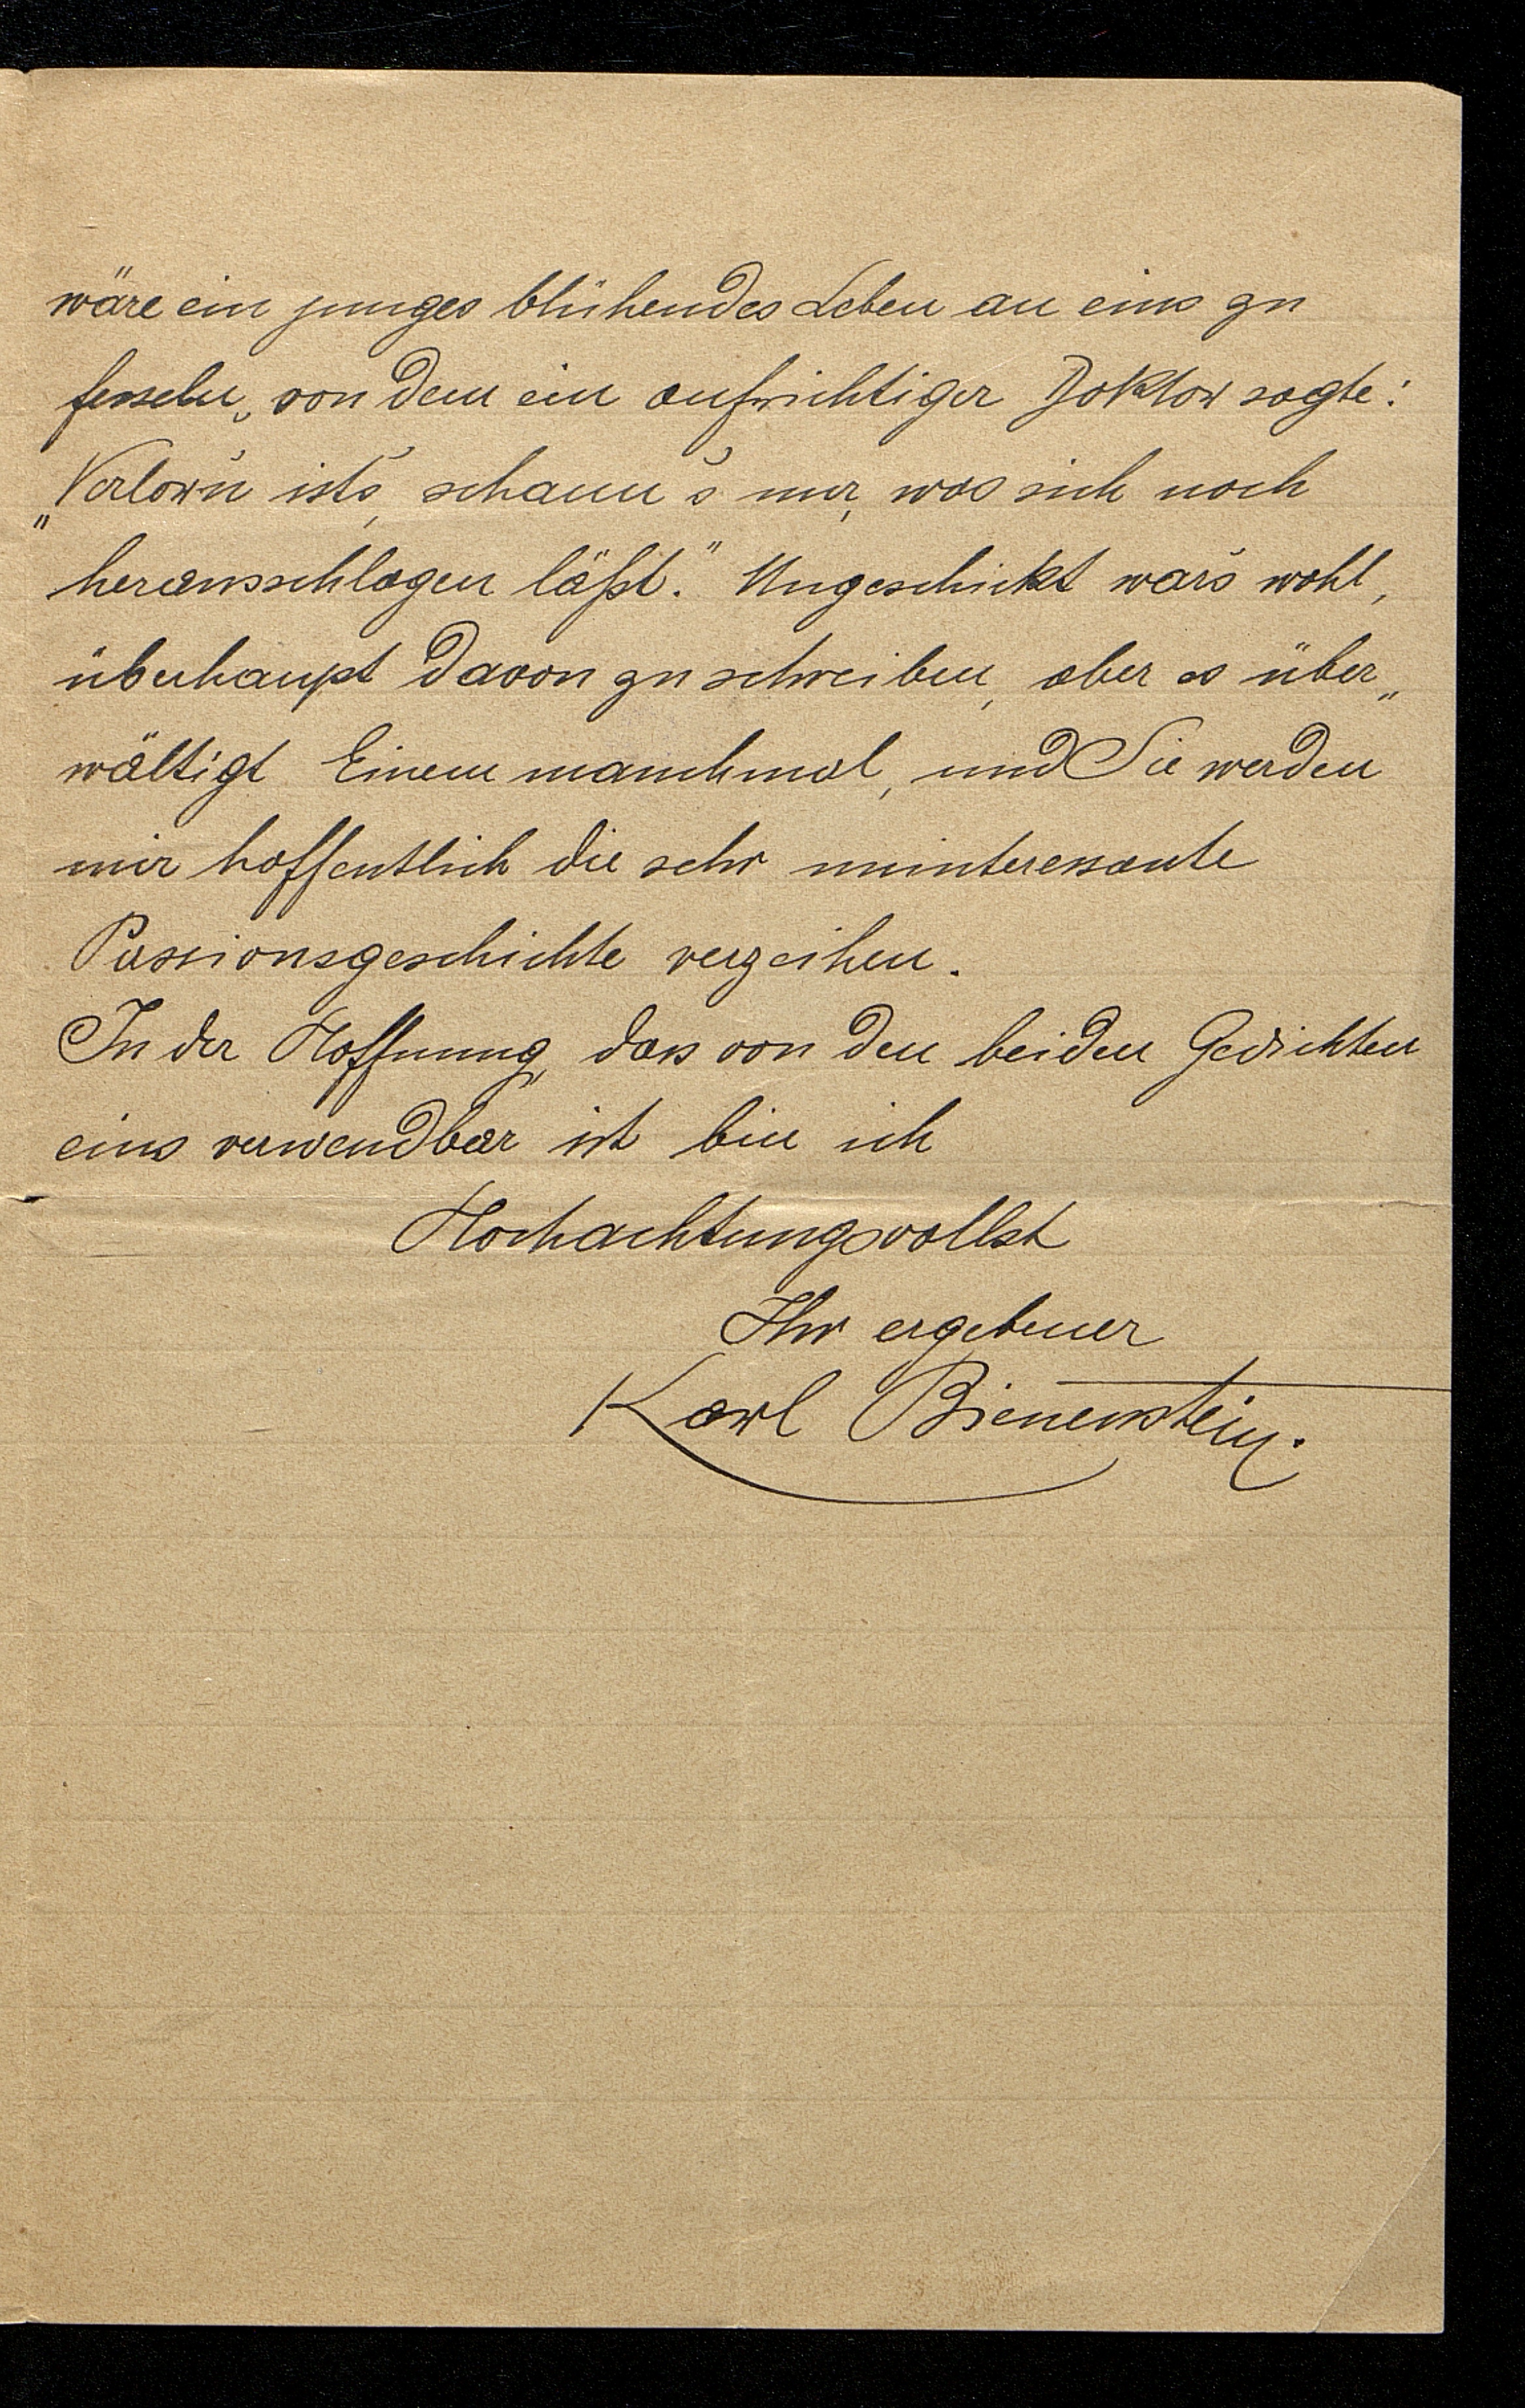 wäre ein junges blühendes Leben an eins zu
fesseln, von dem ein aufrichtiger Doktor sagte:
„Verlor'n ist's, schaun's nur, was sich noch
herausschlagen läßt." Ungeschickt war's wohl,
überhaupt davon zu schreiben, aber es über„
wältigt Einem manchmal, und Sie werden
mir hoffentlich die sehr uninteressante
Passionsgeschichte verzeihen.
In der Hoffnung, dass von den beiden Gedichten
eins verwendbar ist bin ich
Hochachtungsvollst
Ihr ergebener
Karl Bienenstein.